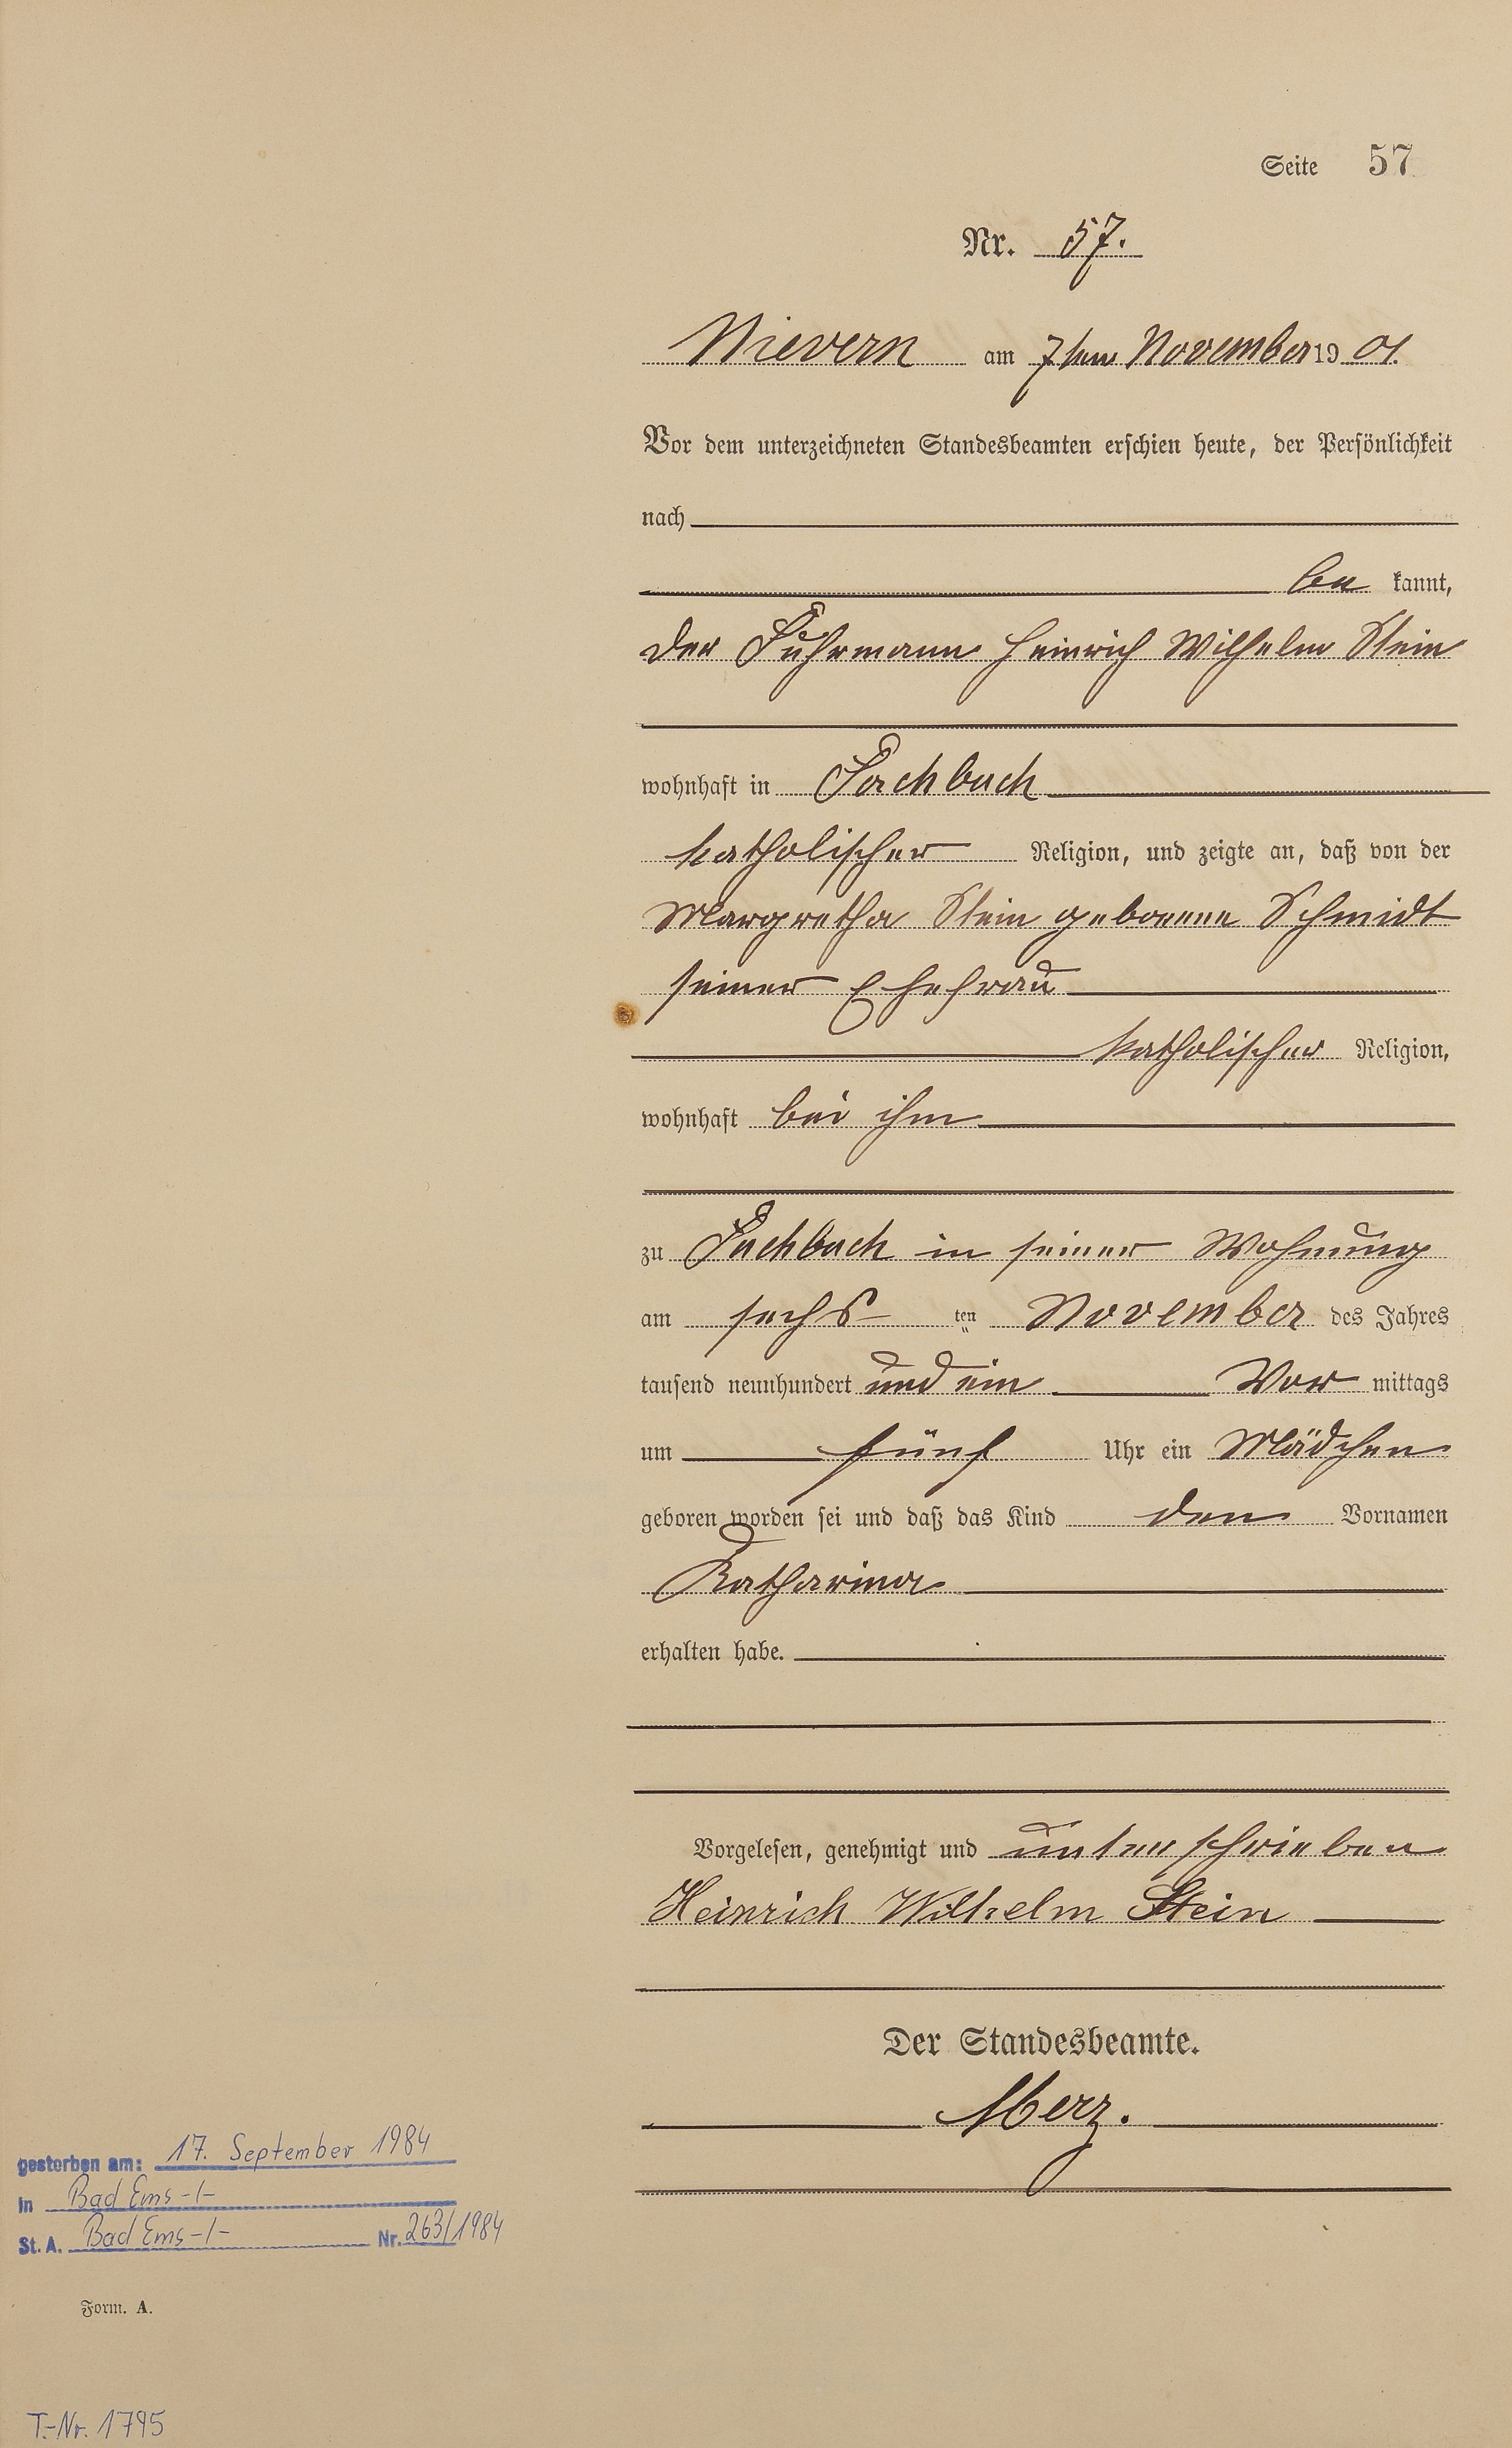 Seite 57
Nr. 57.
Nievern am 7ten November 1901.
Vor dem unterzeichneten Standesbeamten erschien heute, der Persönlichkeit
nach
be kannt,
der Fuhrmann Heinrich Wilhelm Stein
wohnhaft in Fachbach
katholischer Religion, und zeigte an, daß von der
Margretha Stein geborene Schmidt
seiner Ehefrau
katholischer Religion,
wohnhaft bei ihm
zu Fachbach in seiner Wohnung
am sechsten November des Jahres
tausend neunhundert und ein Vormittags
um fünf Uhr ein Mädchen
geboren worden sei und daß das Kind den Vornamen
Katharina
erhalten habe.
Vorgelesen, genehmigt und unterschrieben
Heinrich Wilhelm Stein
Der Standesbeamte.
Merz.
gestorben am: 17. September 1984
in Bad Ems -/-
St. A. Bad Ems -/- Nr. 263/1984
Form. A.
T.-Nr. 1795